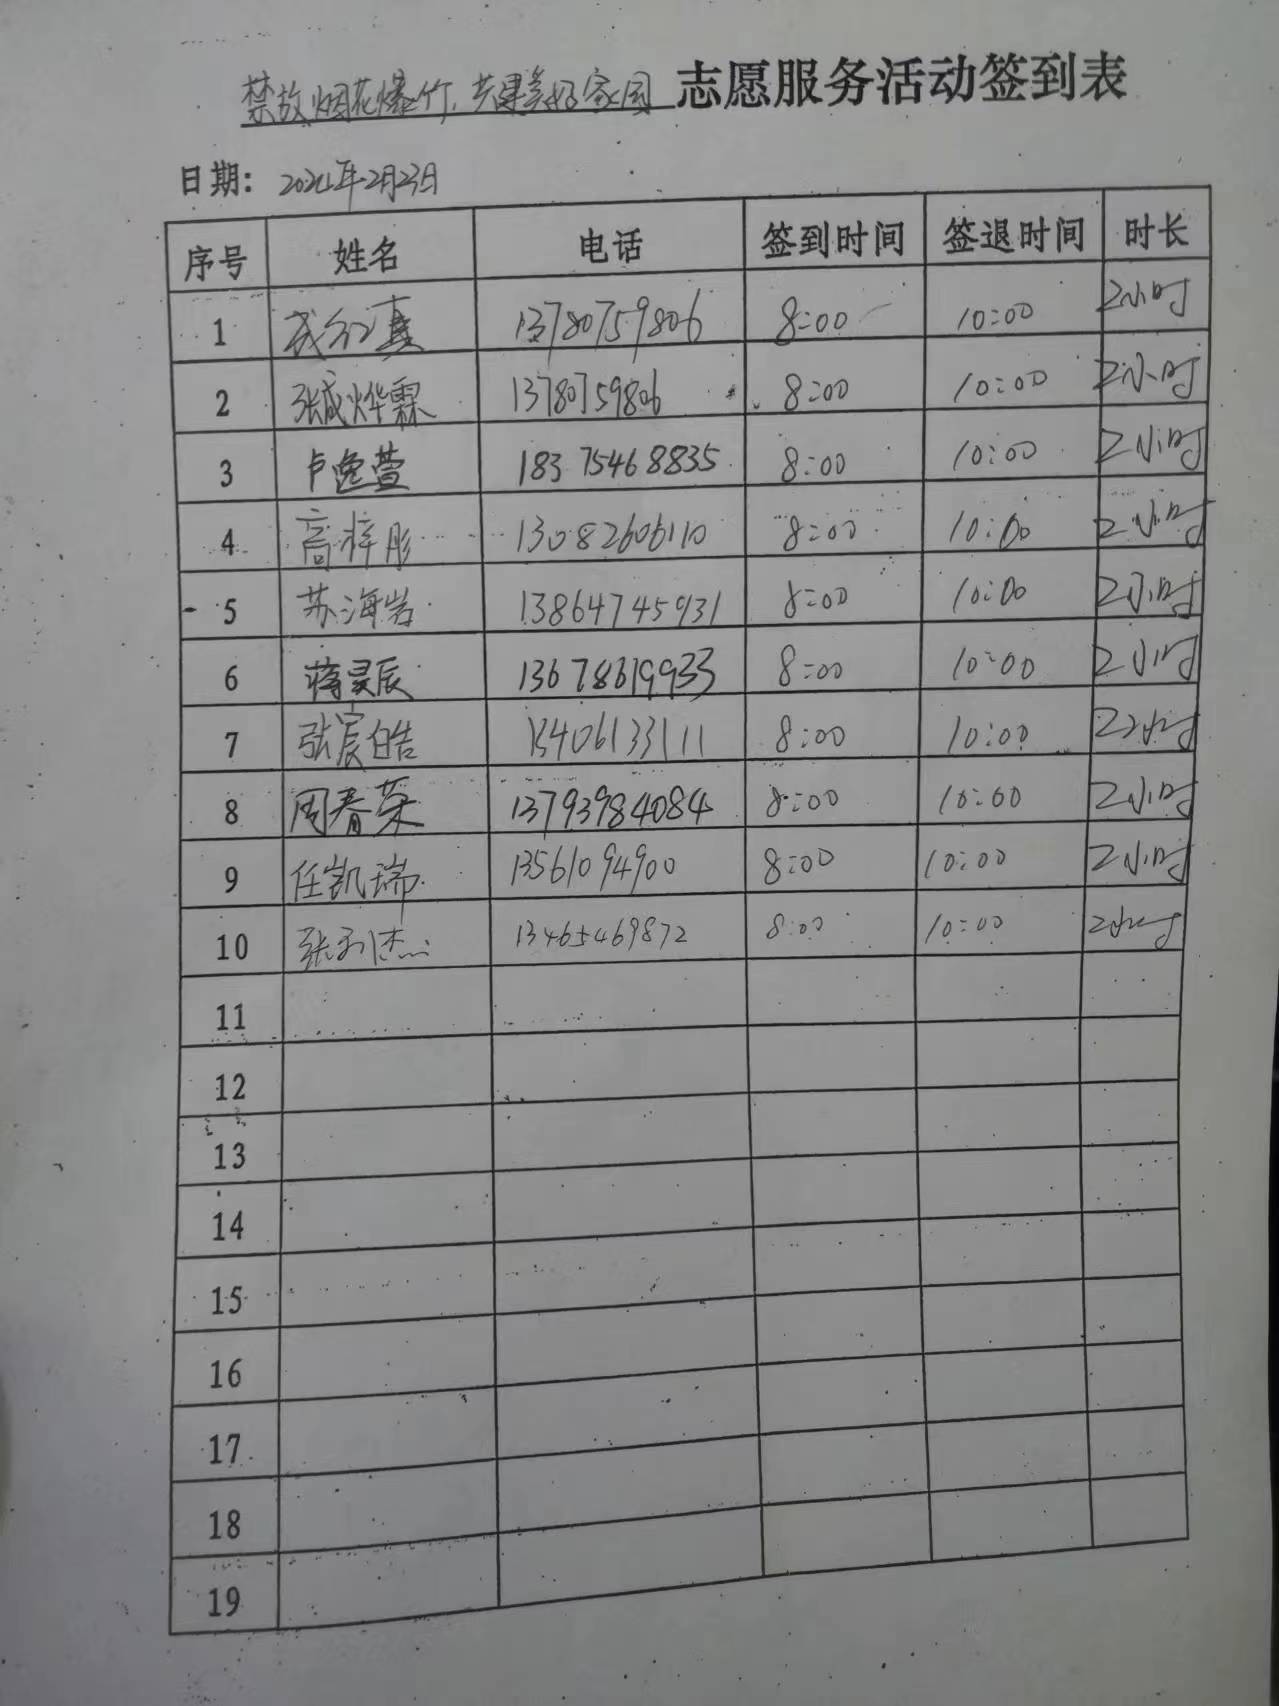 禁放烟花爆竹,共建美好家园 志愿服务活动签到表
日期: 2024年2月23日
序号 姓名 电话 签到时间 签退时间 时长
1 成红真 13780759806 8:00 10:00 2小时
2 张成烨霖 13780759806 8:00 10:00 2小时
3 卢逸萱 18375468835 8:00 10:00 2小时
4 高梓彤 13082606110 8:00 10:00 2小时
5 苏海岩 13864745931 8:00 10:00 2小时
6 蒋昊辰 13678619933 8:00 10:00 2小时
7 张宸皓 13406133111 8:00 10:00 2小时
8 周春荣 13793984084 8:00 10:00 2小时
9 任凯瑞 13561094900 8:00 10:00 2小时
10 张 杰 13465469872 8:00 10:00 2小时
11
12
13
14
15
16
17
18
19